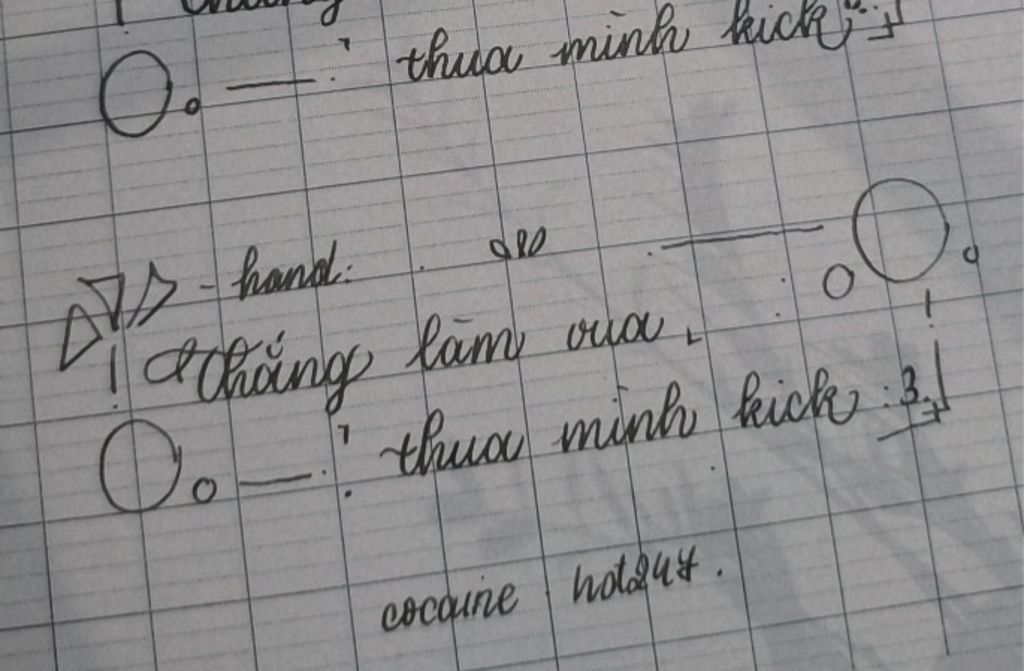 thua mình kick
- hand:
Thắng làm vua
thua mình kick :3
cocaine hot247.